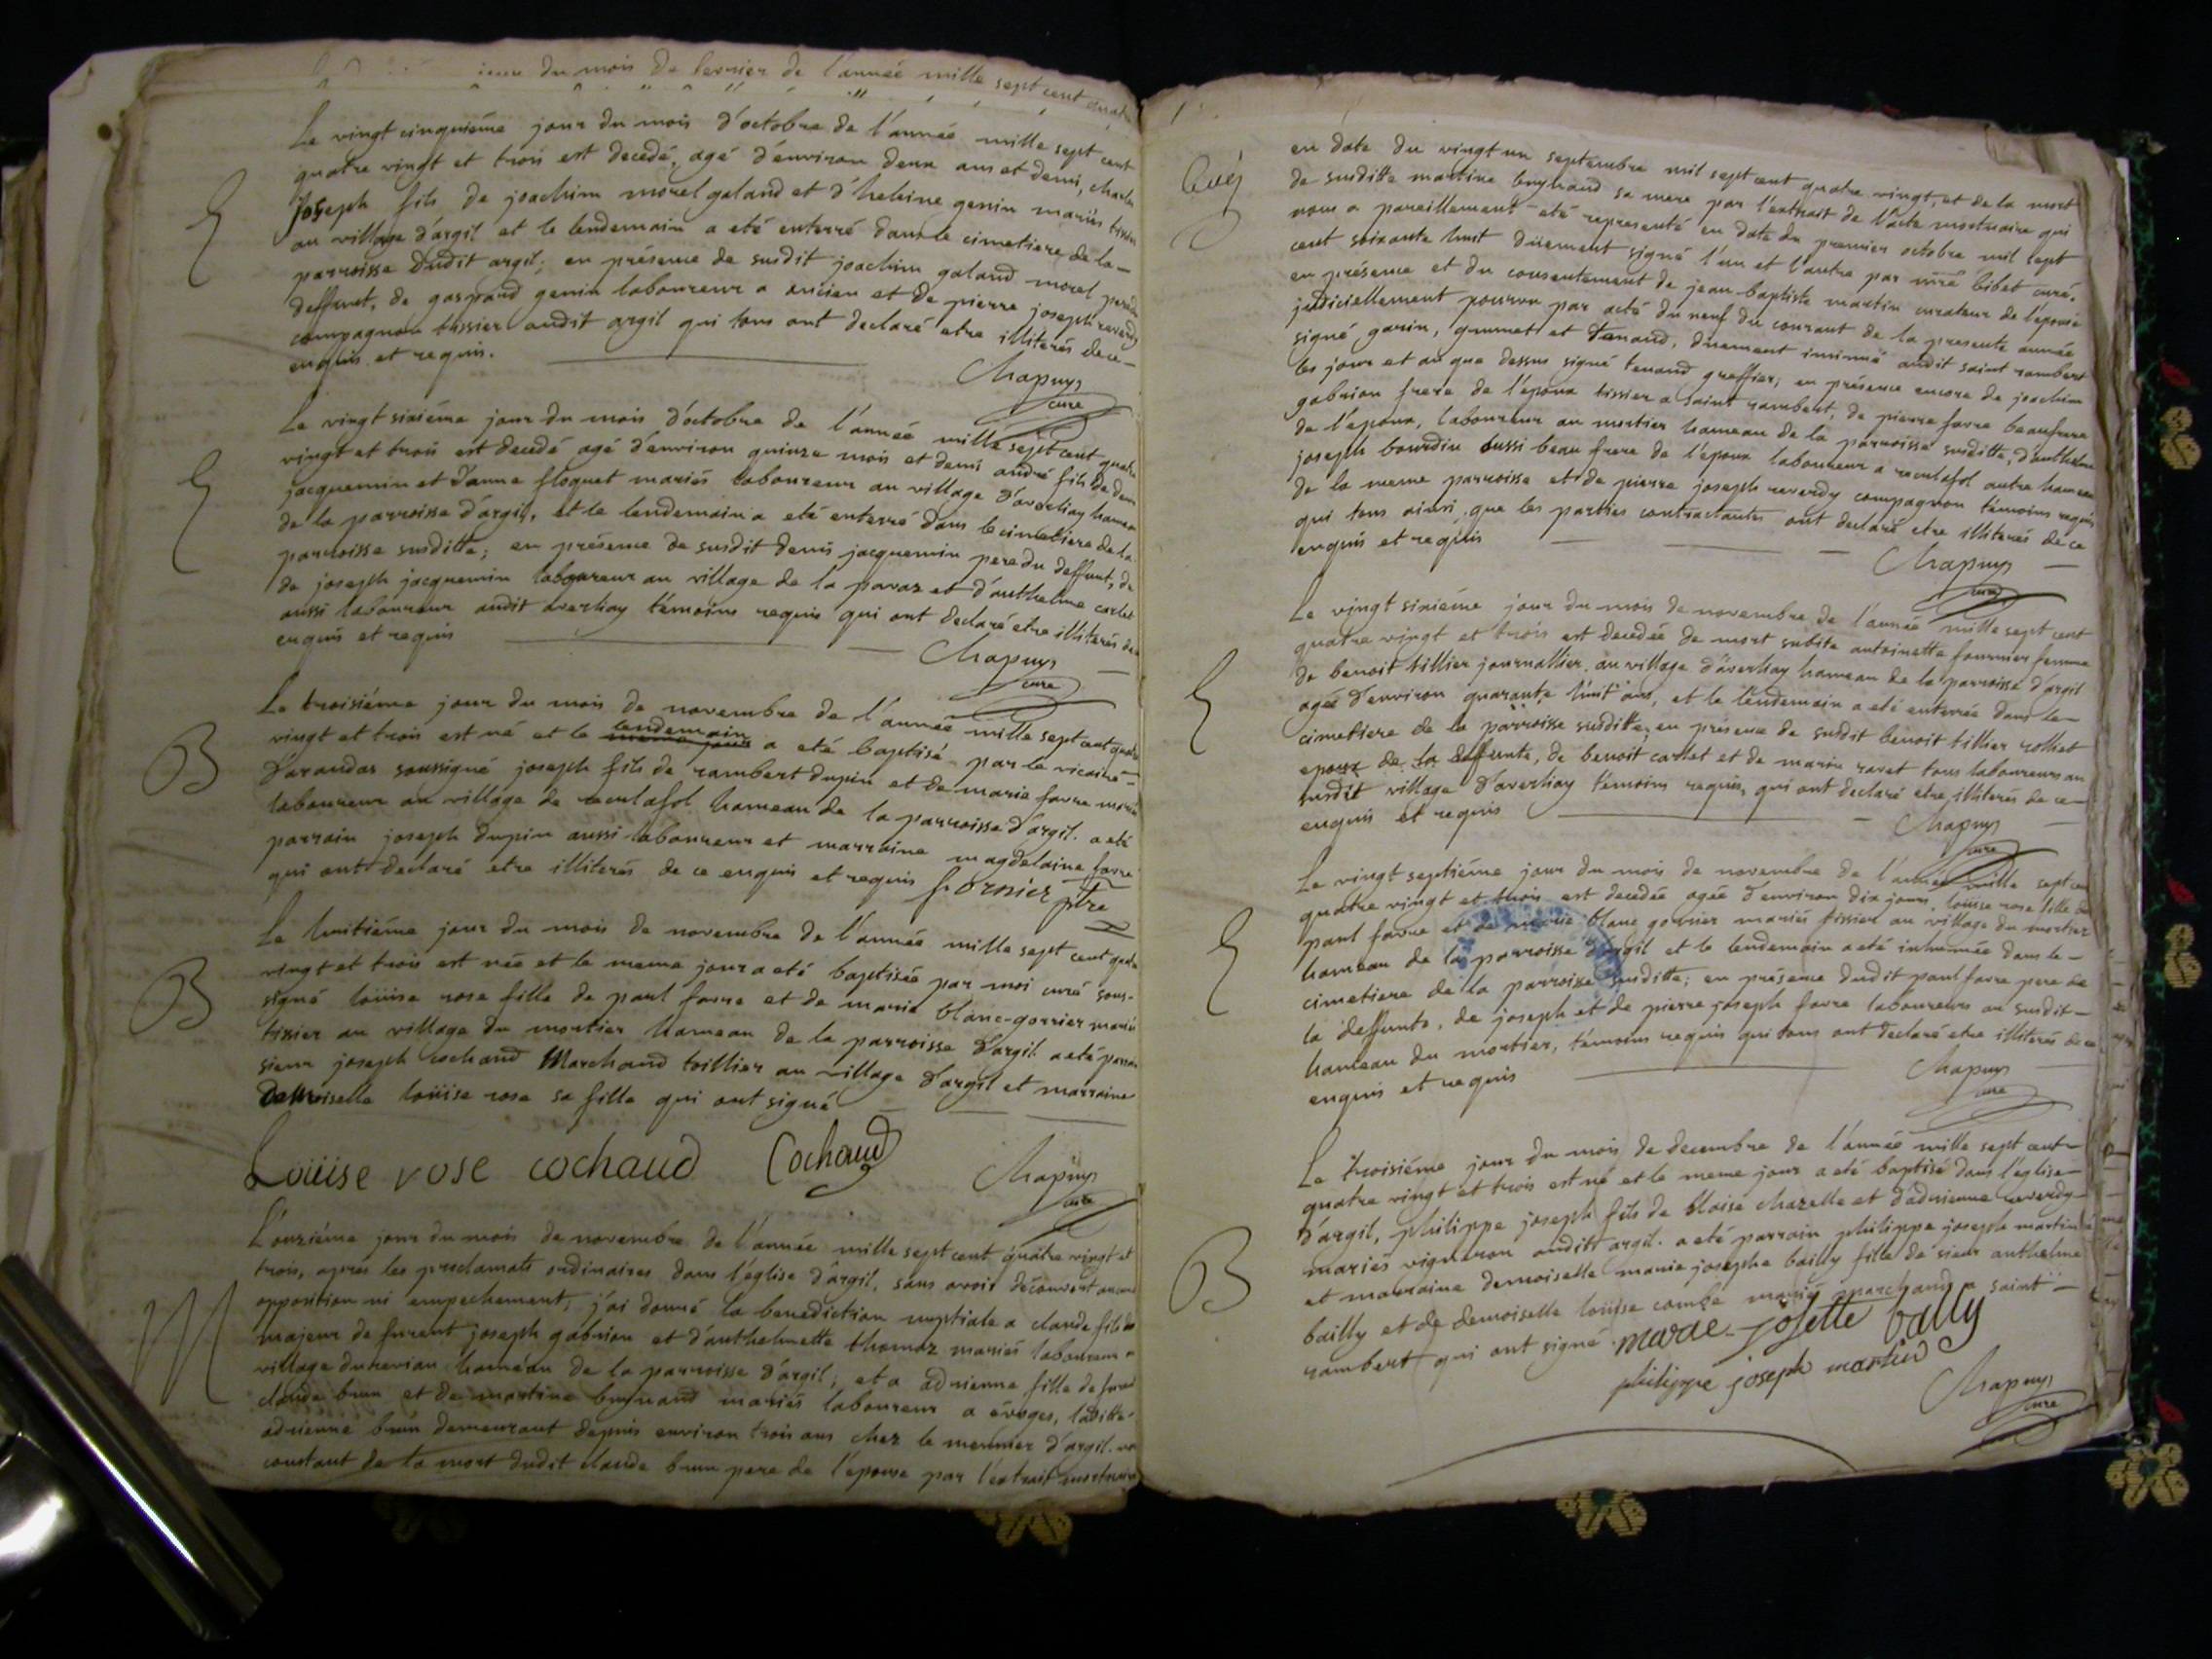 jour du mois de fevrier de l'année mille sept cent quatre
Le vingt cinquiéme jour du mois d'octobre de l'année mille sept cent
quatre vingt et trois est decedé, agé d'environ deux ans et demi, charles
joseph fils de joachim morel galand et d'heleine genin mariés tissier
au village d'argil et le lendemain a eté enterré dans le cimetiere de la-
parroisse dudit argil; en présence de susdit joachim galand morel pere du
deffunt, de gaspard genin laboureur a oncieu et de pierre joseph reverdy
compagnon tissier audit argil qui tous ont declaré etre illiterés de ce-
enquis et requis.
Chapuys
curé
Le vingt sixiéme jour du mois d'octobre de l'année mille sept cent quatre
vingt et trois est decedé agé d'environ quinze mois et demi andré fils de denis
jacquemin et d'anne floquet mariés laboureur au village d'averliay hameau
de la parroisse d'argil, et le lendemain a eté enterré dans le cimetiere de la
parroisse susditte; en présence de susdit denis jacquemin pere du deffunt, de
de joseph jacquemin laboureur au village de la pavaz et d'anthelme carlet
aussi laboureur audit averliay témoins requis qui ont declaré etre illiterés de ce
enquis et requis
Chapuys
curé
Le troisiéme jour du mois de novembre de l'année mille sept cent quatre
vingt et trois est né et le lendemain a eté baptisé par le vicaire-
B
d'arandas soussigné joseph fils de rambert dupin et de marie favre mariés
laboureur au village de reculafol hameau de la parroisse d'argil. a eté
parrain joseph dupin aussi laboureur et marraine magdelaine favre
qui ont declaré etre illiterés de ce enquis et requis fornier ptre
Le huitiéme jour du mois de novembre de l'année mille sept cent quatre
vingt et trois est née et le meme jour a eté baptisée par moi curé sous-
B
signé loüise rose fille de paul favre et de marie blanc-gorrier mariés
tissier au village du mortier hameau de la parroisse d'argil a eté parrain
sieur joseph cochaud Marchand toillier au village d'argil et marraine
Demoiselle loüise rose sa fille qui ont signé
Loüise rose cochaud Cochaud
Chapuys
curé
L'onziéme jour du mois de novembre de l'année mille sept cent quatre vingt et
trois, aprés les proclamats ordinaires dans l'église d'argil, sans avoir découvert aucune
opposition ni empechement, j'ai donné la benediction nuptiale a claude fils de
M
majeur de furent joseph gabrion et d'anthelmette thomaz mariés laboureur a
village du hameau de la parroisse d'argil; et a adrienne fille de furent
claude brun et de martine mariés laboureur a évoges, laditte-
adrienne brun demeurant depuis environ trois ans chez le meunier d'argil.
constant de la mort dudit claude brun pere de l'epouse par l'extrait mortuaire
en date du vingt un septembre mil sept cent quatre vingt, et de la mort
de susditte martine sa mere par l'extrait de l'acte mortuaire qui
nous a pareillement eté representé en date du premier octobre mil sept
cent soixante huit düement signé l'un et l'autre par mre bibet curé.
en présence et du consentement de jean baptiste martin curateur de l'epouse
judiciellement pourvu par acte du neuf du courant de la presente année
signé garin, grumet et tenand, düement insinué audit saint rambert
les jour et an que dessus signé tenand greffier; en présence encore de joachim
gabrion frere de l'epoux tissier a saint rambert, de pierre favre beaufrere
de l'epoux, laboureur au mortier hameau de la parroisse susditte, d'anthelme
joseph bourdin aussi beau frere de l'epoux laboureur a reculafol autre hameau
de la meme parroisse et de pierre joseph reverdy compagnon témoins requis
qui tous ainsi que les parties contractantes ont declaré etre illiterés de ce
enquis et requis
Chapuys
curé
Le vingt sixiéme jour du mois de novembre de l'année mille sept cent
quatre vingt et trois est decedée de mort subite antoinette fournier femme
de benoit tillier journallier au village d'averliay hameau de la parroisse d'argil
agée d'environ quarante huit ans, et le lendemain a eté enterrée dans le-
cimetiere de la parroisse susditte, en présence de susdit benoit tillier rolliet
epoux de la deffunte, de benoit carlet et de marin ravet tous laboureurs au
susdit village d'averliay témoins requis, qui ont declaré etre illiterés de ce-
enquis et requis
Chapuys
curé
Le vingt septiéme jour du mois de novembre de l'année mille sept cent
quatre vingt et trois est decedée agée d'environ dix jours, louise rose fille de
paul favre et de marie blanc gorrier mariés tissier au village du mortier
hameau de la parroisse d'argil et le lendemain a eté inhumée dans le-
cimetiere de la parroisse susditte; en présence dudit paul favre pere de
la deffunte, de joseph et de pierre joseph favre laboureurs au susdit-
hameau du mortier, témoins requis qui tous ont declaré etre illiterés de ce
enquis et requis
Chapuys
curé
Le troisiéme jour du mois de decembre de l'année mille sept cent-
quatre vingt et trois est né et le meme jour a eté baptisé dans l'église-
d'argil, philippe joseph fils de blaise chazelle et d'adrienne reverdy-
B
mariés vigneron audit argil. a eté parrain philippe joseph martin
et marraine demoiselle marie josephe bailly fille de sieur anthelme
bailly et de demoiselle loüise combe mariés marchand a saint-
rambert qui ont signé marae-josette bally
philippe joseph martin
Chapuys
curé